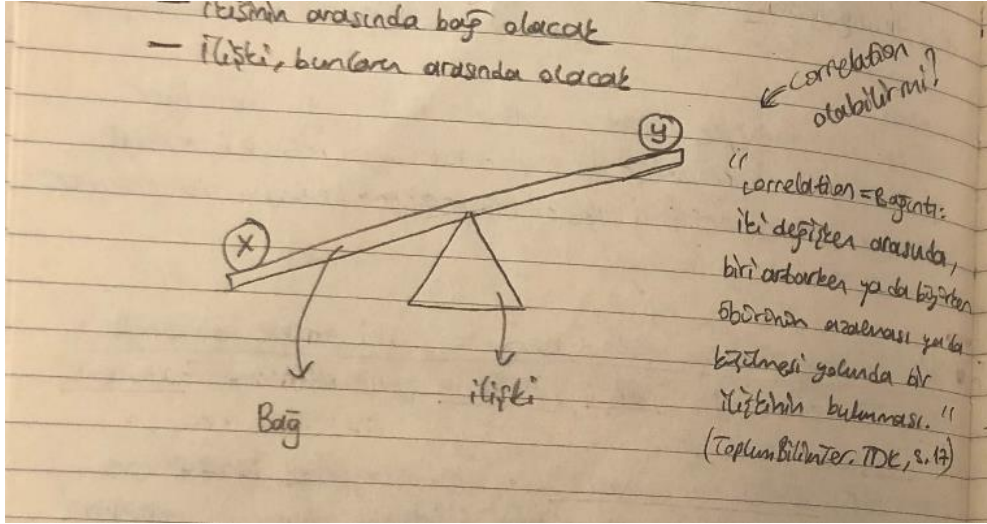 — ikisinin arasında bağ olacak
— ilişki, bunların arasında olacak
correlation
olabilir mi?
y
x
Bağ
ilişki
"correlation = Bağıntı:
iki değişken arasında,
biri artarken ya da büyürken
öbürünün azalması ya da
küçülmesi yolunda bir
ilişkinin bulunması."
(Toplum Bilim Ter. TDK, s. 17)